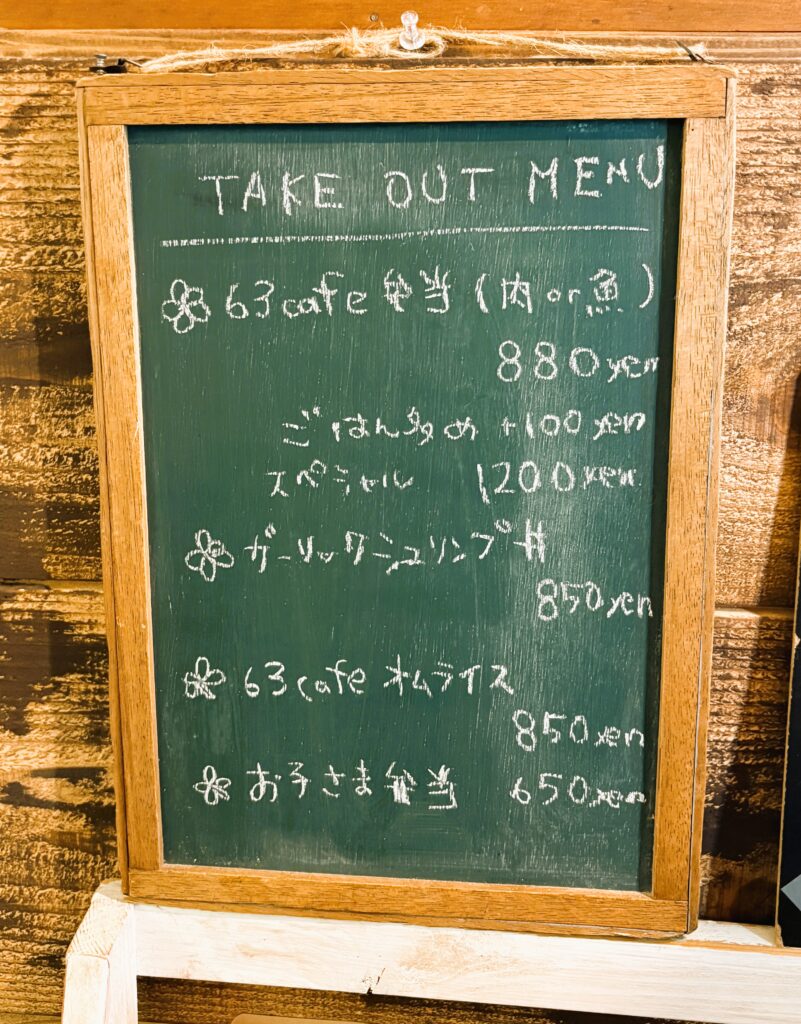 TAKE OUT MENU
63cafe 弁当 (肉 or 魚)
880yen
ごはん多め +100yen
スペシャル 1200yen
ガーリックシュリンプ丼
850yen
63cafe オムライス
850yen
お子さま弁当 650yen